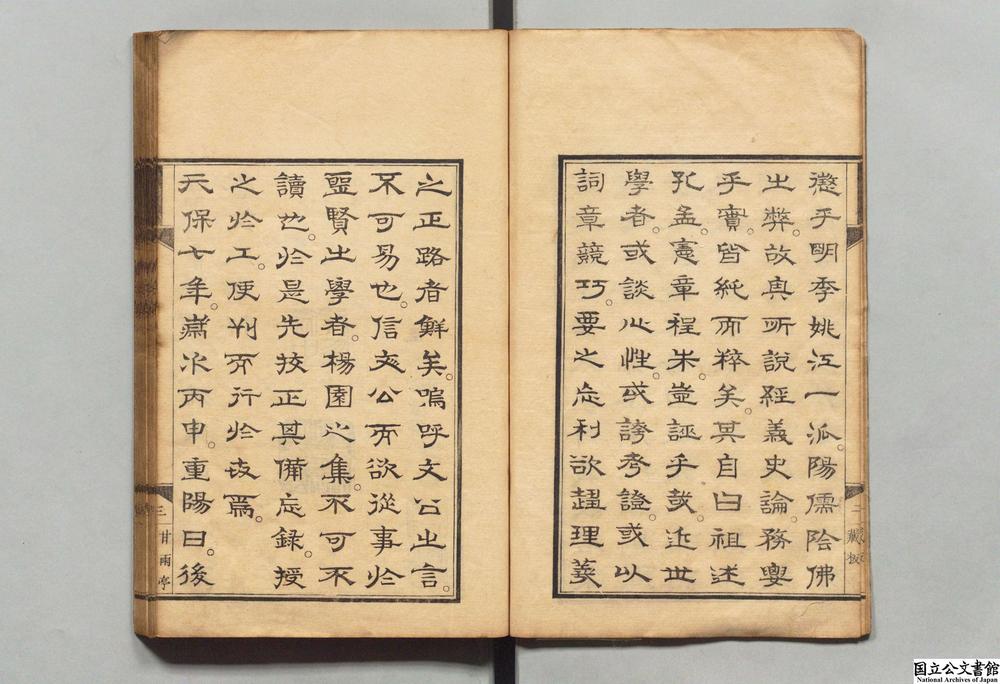 懲乎明季姚江一派。陽儒陰佛
之弊。故其所說經義史論。務要
乎實。皆純而粹矣。其自曰祖述
孔孟。憲章程朱。豈誣乎哉。近世
學者。或談心性。或誇考證。或以
詞章競巧。要之志利欲趨理義
二 藏板
之正路者鮮矣。嗚呼文公之言。
不可易也。信夫公而欲從事於
聖賢之學者。楊園之集。不可不
讀也。於是先挍正其備忘錄。授
之於工。使刊而行於世焉。
天保七年。歲次丙申。重陽日。後
三 甘雨亭
国立公文書館
National Archives of Japan